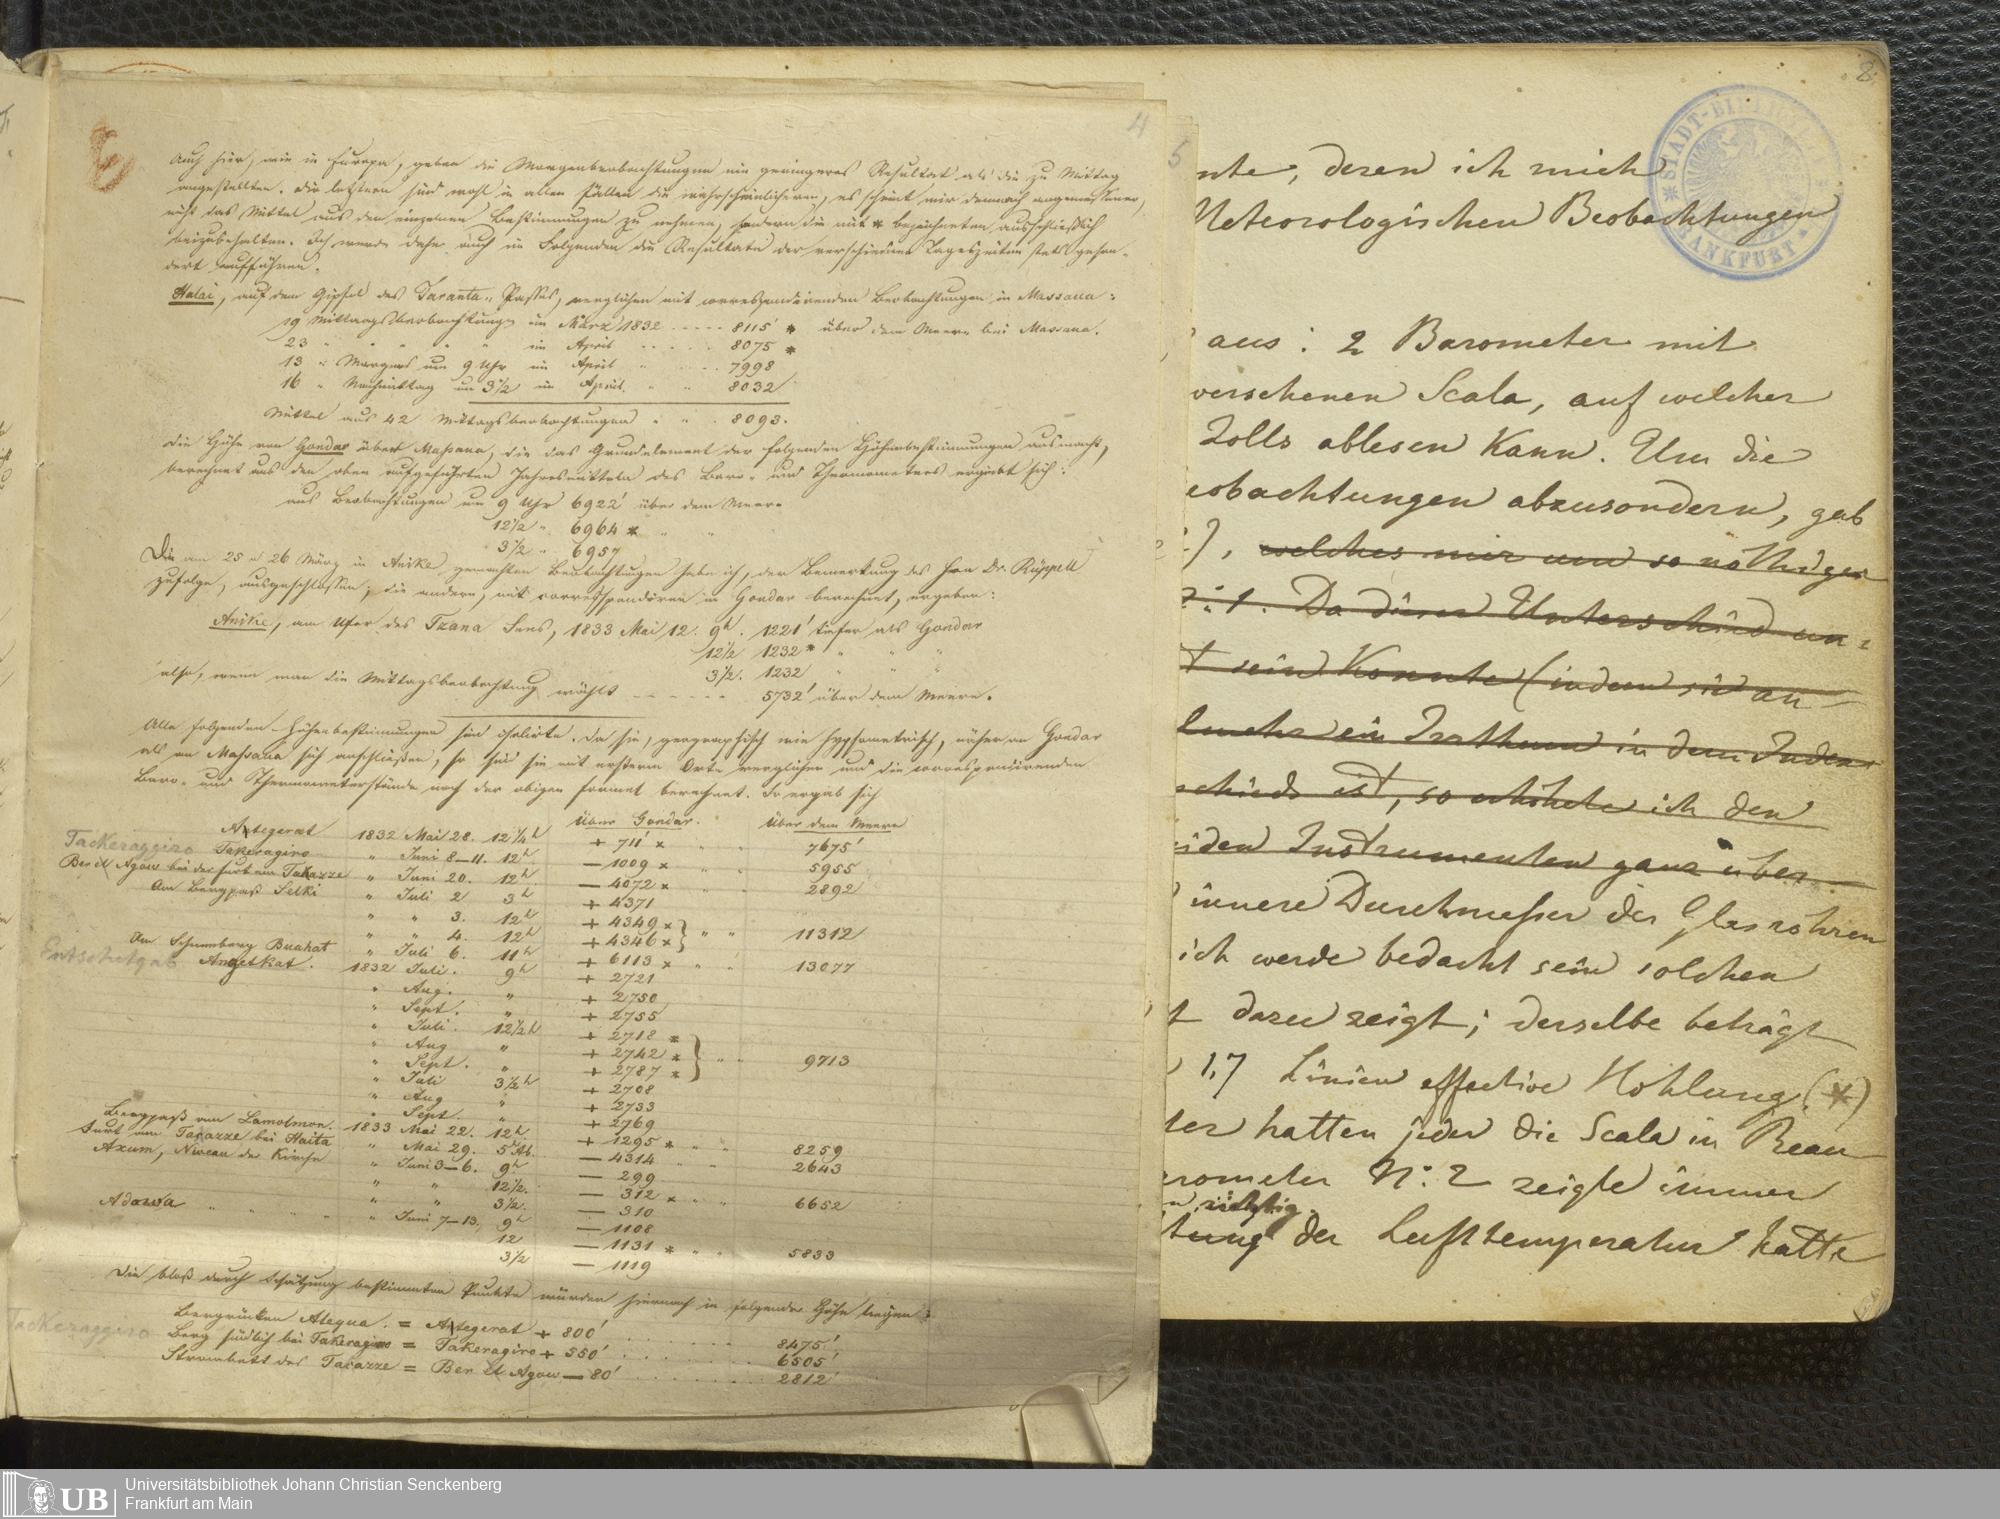 4
Auch hier, wie in Europa, geben die Morgenbeobachtungen ein geringeres Resultat als die zu Mittag
angestellten. Die letztern sind wohl in allen Fällen die wahrscheinlichern, es scheint mir dennoch angemessener,
nicht das Mittel aus den einzelnen Bestimmungen zu nehmen, sondern die mit * bezeichneten ausschließlich
beizubehalten. Ich werde daher auch im Folgenden die Resultate der verschiedenen Tageszeiten stets geson-
dert aufführen.
Halai, auf dem Gipfel des Taranta-Passes, verglichen mit correspondirenden Beobachtungen in Massaua:
19 Mittagsbeobachtungen im März 1832 ----- 8115' * über dem Meere bei Massaua.
23 " " " " im April ----- 8075 *
13 " Morgens um 9 Uhr im April " ---- 7998
16 " Nachmittag um 3½ im April. " " 8032
Mittel aus 42 Mittagsbeobachtungen " " . 8093.
Die Höhe von Gondar über Massaua, die das Grundelement der folgenden Höhenbestimmungen ausmacht,
berechnet aus den oben aufgeführten Jahresmitteln des Baro- und Thermometers ergiebt sich:
aus Beobachtungen um 9 Uhr 6922' über dem Meere
12½ " 6964 * " "
3½ " 6957
Die am 25 u 26 März in Anike gemachten Beobachtungen habe ich, der Bemerkung des Hrn Dr. Rüppell
zufolge, ausgeschlossen; die andern, mit correspondiren in Gondar berechnet, ergeben:
Anike, am Ufer des Tzana Sees, 1833 Mai 12. 9h. 1221' tiefer als Gondar
12½ 1232 * " " "
3½. 1232 " " "
also, wenn man die Mittagsbeobachtung wählt ------ 5732' über dem Meere.
Alle folgenden Höhenbestimmungen sind isolirte. Da sie, geographisch wie hypsometrisch, näher an Gondar
als an Massaua sich anschließen, so sind sie mit ersterm Orte verglichen und die correspondirenden
Baro- und Thermometerstände nach der obigen Formel berechnet. So ergab sich
Über Gondar. Über dem Meere
Ategerat 1832 Mai 28. 12¼h + 711' * " " 7675'
Tackeraggiro Takeragiro " Juni 8–11. 12h — 1009 * 5955
Ber el Agow bei der Furt am Takazze " Juni 20. 12h — 4072 * " " 2892
Am Bergpaß Selki " Juli 2 3h + 4371
" " 3. 12h + 4349 *
" " 4. 12h + 4346 * } " " 11312
Am Schneeberg Buahat " Juli 6. 11h + 6113 * " " 13077
Entschetqab Angetkat. 1832 Juli. 9h + 2721
" Aug. " + 2750
" Sept. " + 2755
" Juli. 12½h + 2718 *
" Aug " + 2742 * } " " 9713
" Sept. " + 2787 *
" Juli 3½h + 2708
" Aug " + 2733
" Sept. " + 2769
Bergpaß am Lamolmon. 1833 Mai 22. 12h + 1295 * " " 8259
Furt am Tacazze bei Haita " Mai 29. 5h Ab. — 4314 " " 2643
Axum, Niveau der Kirche " Juni 3–6. 9h — 299
" " 12½. — 312 * " " 6652
" " 3½. — 310
Adowa " " " " " Juni 7–13. 9h — 1108
12 — 1131 * " " 5833
3½ — 1119
Die bloß durch Schätzung bestimmten Punkte würden hiernach in folgender Höhe liegen:
Bergrücken Ategua. = Ategerat + 800' ... 8475'
Tackeraggiro Berg südlich bei Takeragiro = Takeragiro + 550' ... 6505'
Strombett des Tacazze = Ber el Agow — 80' ... 2812'
5
8.
STADT-BIBLIOTHEK * FRANKFURT A. M. *
nte, deren ich mich
Meteorologischen Beobachtungen
aus: 2 Barometer mit
versehenen Scala, auf welcher
Zolls ablesen kann. Um die
eobachtungen abzusondern, gab
), welches mir um so nöthiger
1. Da dieser Unterschied un=
t sein konnte (indem sie an
lmehr ein Irrthum in dem
schieds ist, so erhöhete ich den
iden Instrumenten ganz über
innere Durchmesser der Glasröhren
ich werde bedacht sein solchen
t dazu zeigt; derselbe beträgt
1,7 Linien effective Höhlung (*)
ter hatten jeder die Scala in Reau
rometer N: 2 zeigte immer
richtig.
tung der Lufttemperatur hatte
Universitätsbibliothek Johann Christian Senckenberg
Frankfurt am Main
UB